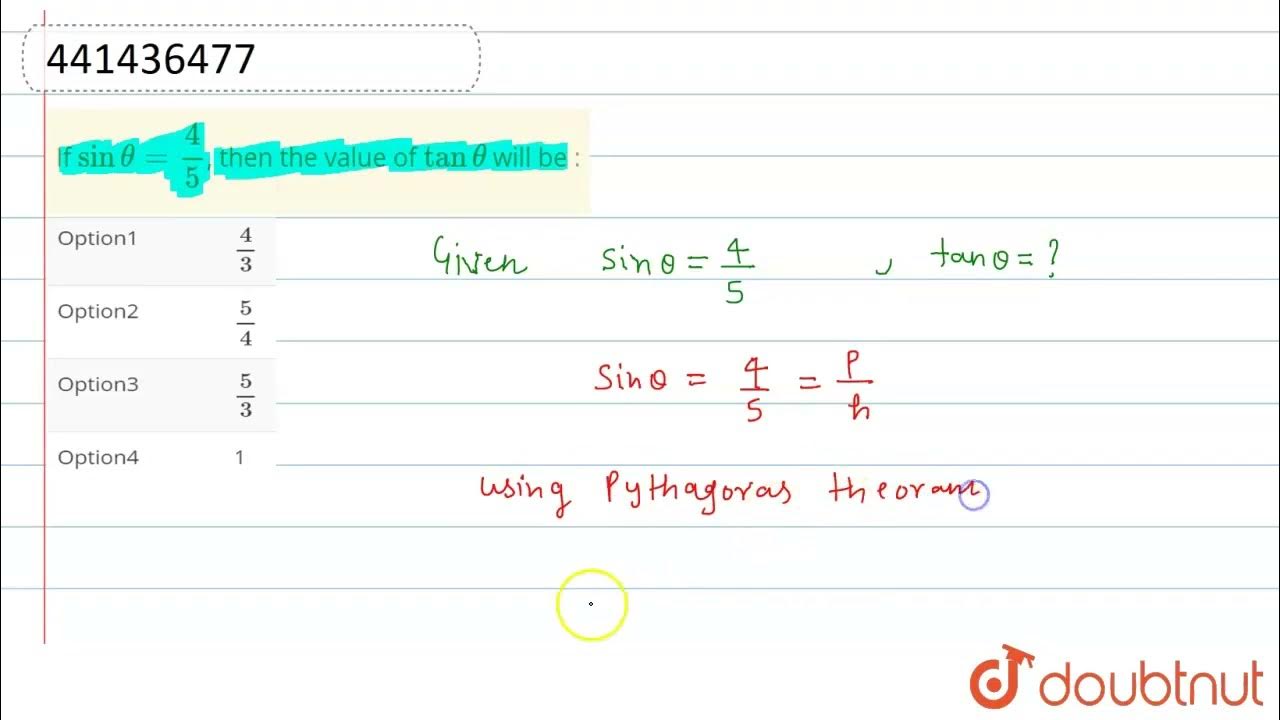 441436477
If sin θ = 4/5, then the value of tan θ will be :
Option1 4/3
Option2 5/4
Option3 5/3
Option4 1
Given sin θ = 4/5 , tan θ = ?
Sin θ = 4/5 = P/h
using Pythagoras theoram
doubtnut